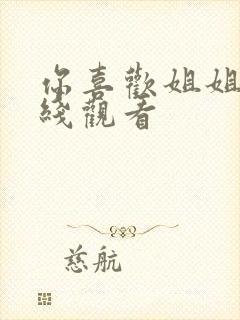 你喜歡姐姐
綫觀看
慈航